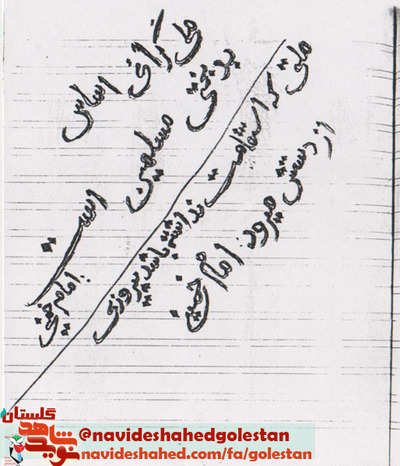 ملی گرائی اساس
بدبختی
مسلمین است
امام خمینی
ملتی که استقامت نداشته باشد پیروزی
از دستش میرود. امام خمینی
گلستان
نوید شاهد
@navideshahedgolestan
navideshahed.com/fa/golestan